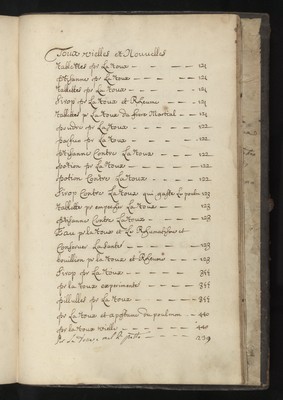 Toux vielles et Nouvelles
tablettes pr La toux — — — 121
ptisanne pr La toux — — — 121
tablettes pr La toux — — — 121
Sirop pr La toux et Rheume — 121
tablettes pr La toux du frere Martial — 121
poudre pr La toux — — — 122
parfun pr La toux — — — 122
ptisanne Contre La toux — — 122
potion pr La toux — — — 122
potion Contre La toux — — 122
Sirop Contre La toux qui gaste Le poulm 123
tablette pr empescher La toux — — 123
ptisanne Contre La toux — — 123
Eau pr la toux et Le
Conserver La sante — — — 123
bouillon pr La toux et Rheume — 123
Sirop pr La toux — — — 344
pr La toux experimenté — — 344
pillulles pr La toux — — — 344
pr La toux et apostume du poulmon — 440
pr la toux vielle — — — 440
Pr La toux — 239